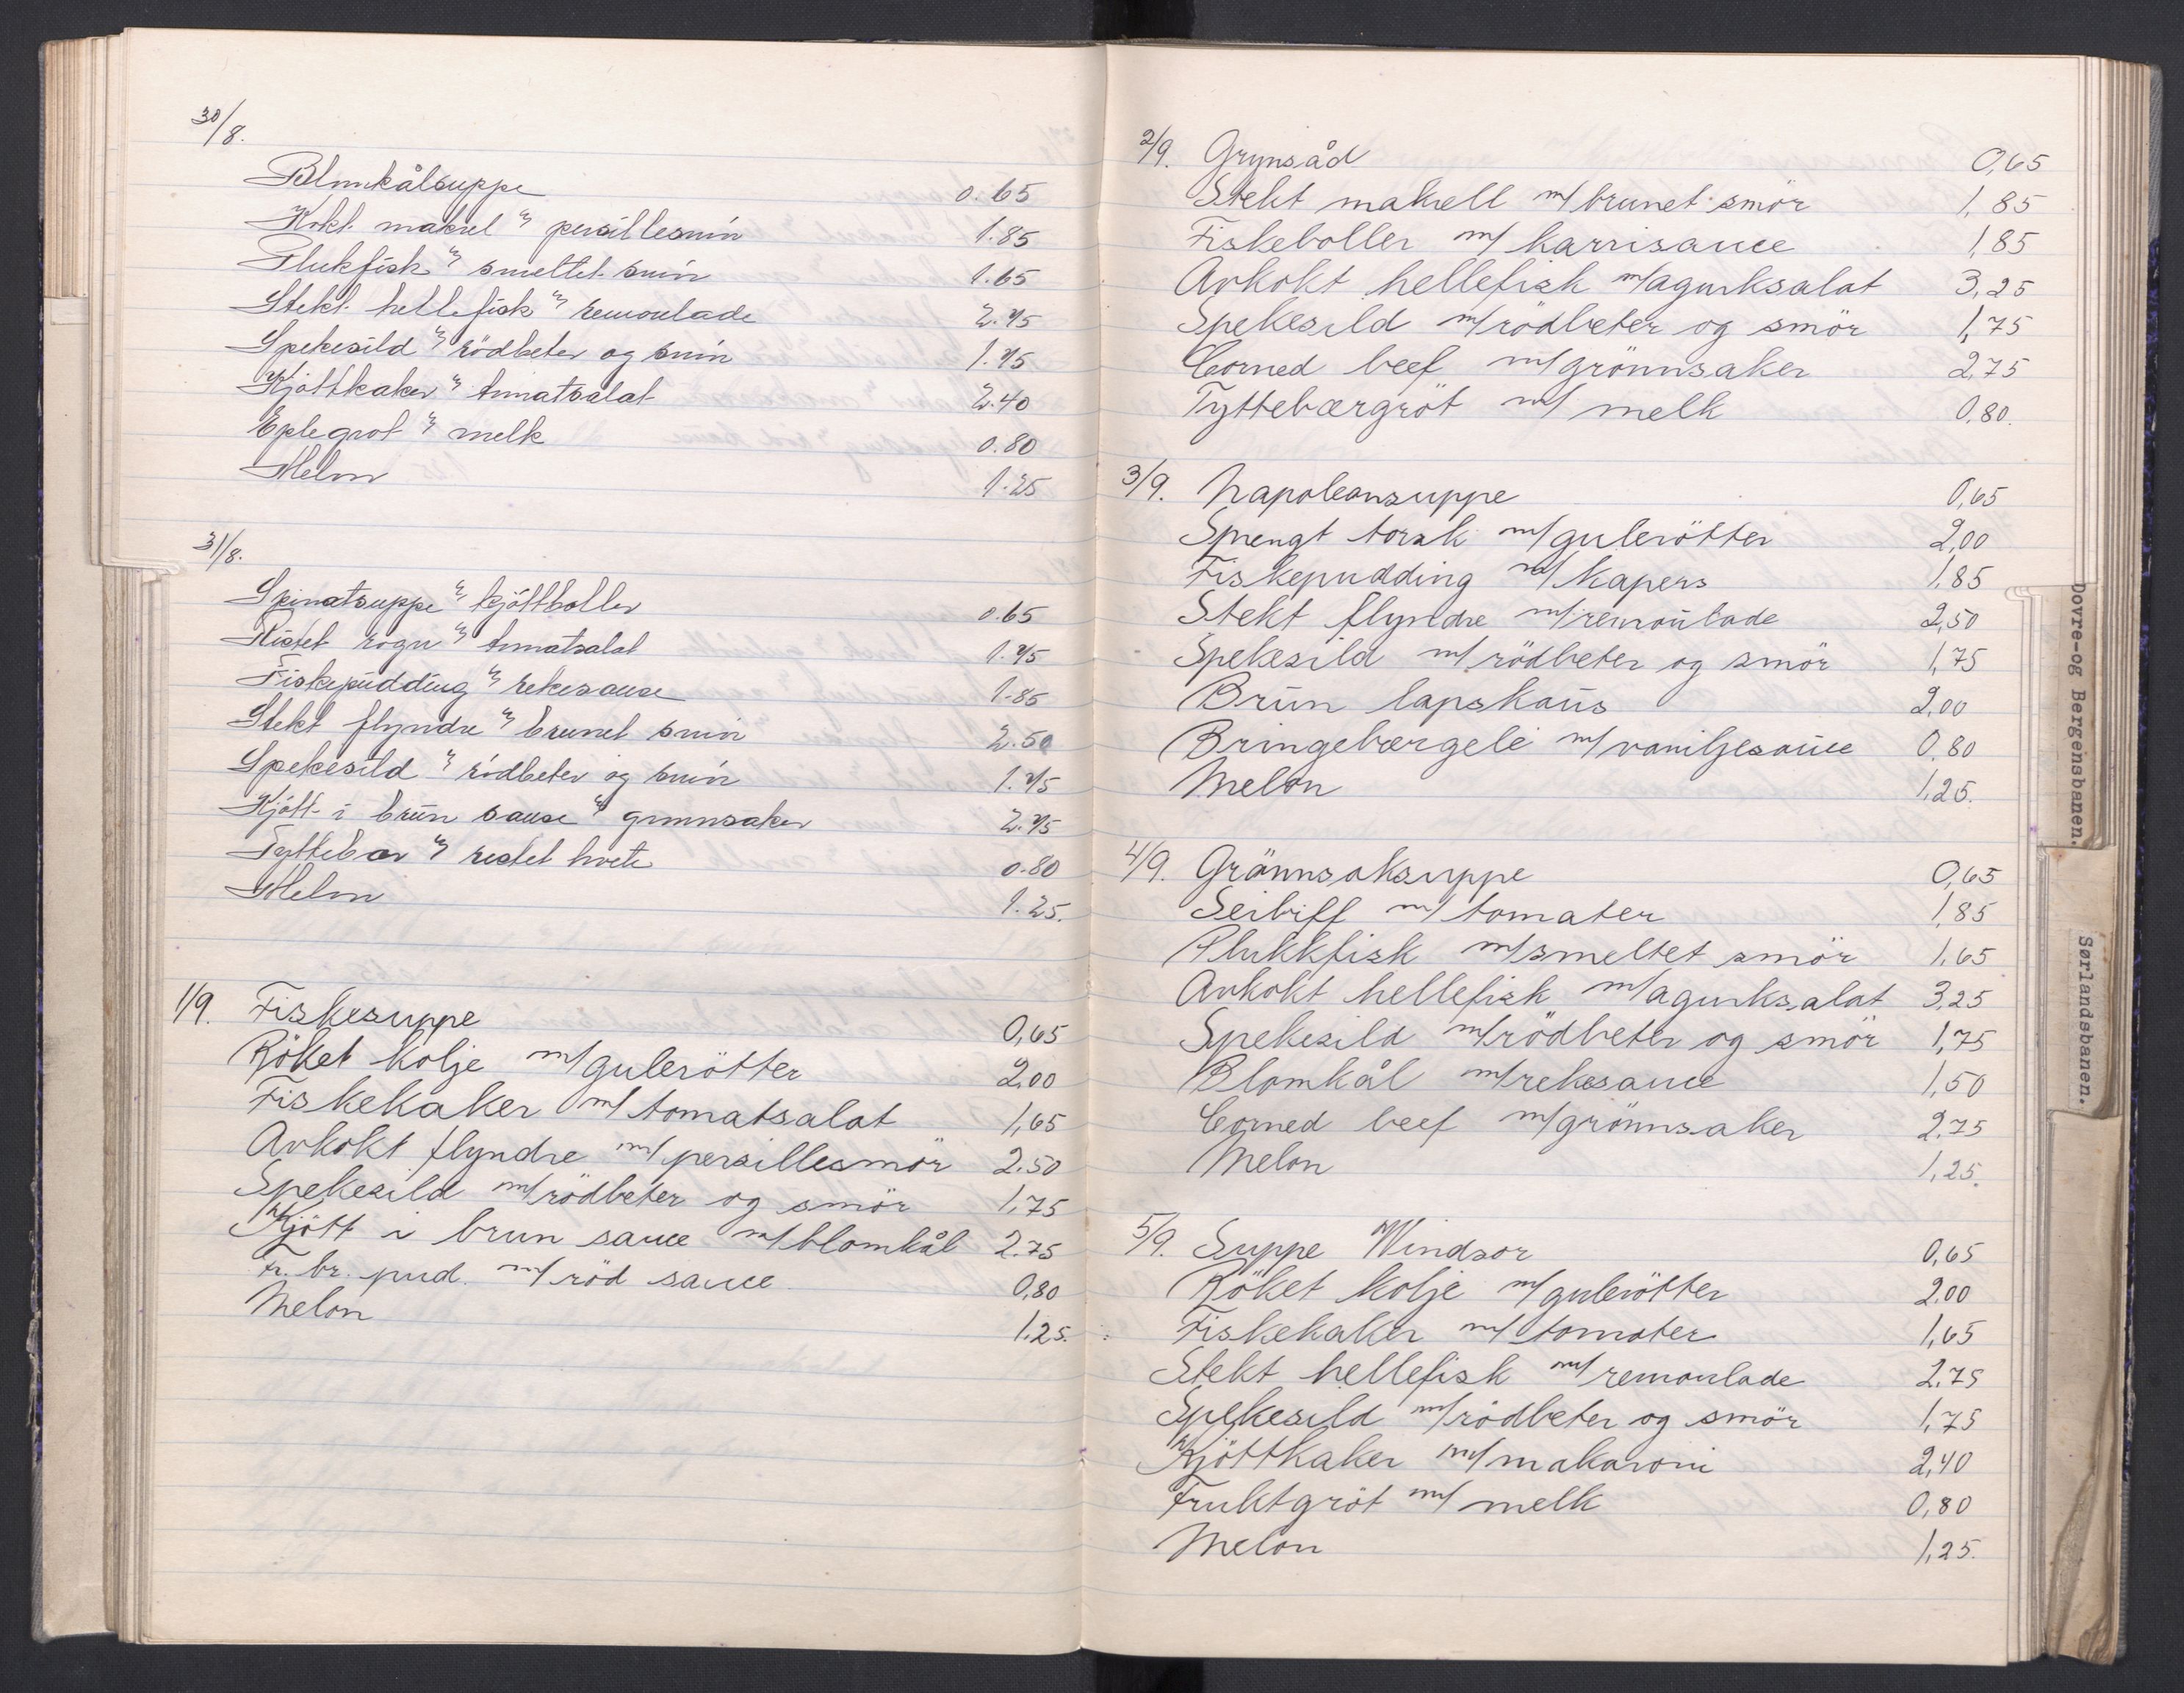 30/8.
Blomkålsuppe 0.65
Kokt makrel m/ persillesmör 1.85
Plukfisk m/ smeltet smör 1.65
Stekt hellefisk m/ remoulade 2.75
Spekesild m/ rödbeter og smör 1.75
Kjöttkaker m/ tomatsalat 2.40
Eplegröt m/ melk 0.80
Melon 1.25
31/8.
Spinatsuppe m/ kjöttboller 0.65
Ristet rogn m/ tomatsalat 1.75
Fiskepudding m/ rekesause 1.85
Stekt flyndre m/ brunet smör 2.50
Spekesild m/ rödbeter og smör 1.75
Kjött i brun sause m/ grønnsaker 2.75
Tyttebær m/ ristet hvete 0.80
Melon 1.25.
1/9. Fiskesuppe 0,65
Röket kolje m/ gulerötter 2,00
Fiskekaker m/ tomatsalat 1,65
Avkokt flyndre m/ persillesmör 2.50
Spekesild m/ rödbeter og smör 1,75
Kjött i brun sauce m/ blomkål 2.75
Fr. br. pud. m/ röd sauce 0,80
Melon 1.25.
2/9. Grynsåd 0,65
Stekt makrell m/ brunet smör 1,85
Fiskeboller m/ karrisauce 1,85
Avkokt hellefisk m/ agurksalat 3,25
Spekesild m/ rödbeter og smör 1,75
Corned beef m/ grönnsaker 2,75
Tyttebærgröt m/ melk 0,80.
3/9. Napoleonsuppe 0,65
Sprengt torsk m/ gulerötter 2,00
Fiskepudding m/ kapers 1,85
Stekt flyndre m/ remoulade 2,50
Spekesild m/ rödbeter og smör 1,75
Brun lapskaus 2,00
Bringebærgele m/ vaniljesauce 0,80
Melon 1,25.
4/9. Grönnsaksuppe 0,65
Seibiff m/ tomater 1,85
Plukkfisk m/ smeltet smör 1,65
Avkokt hellefisk m/ agurksalat 3,25
Spekesild m/ rödbeter og smör 1,75
Blomkål m/ rekesauce 1,50
Corned beef m/ grönnsaker 2.75
Melon 1,25.
5/9. Suppe Windsor 0,65
Röket kolje m/ gulerötter 2.00
Fiskekaker m/ tomater 1,65
Stekt hellefisk m/ remoulade 2.75
Spekesild m/ rödbeter og smör 1,75
Kjöttkaker m/ makaroni 2,40
Fruktgröt m/ melk 0,80
Melon 1,25.
Dovre-og Bergensbanen.
Sørlandsbanen.